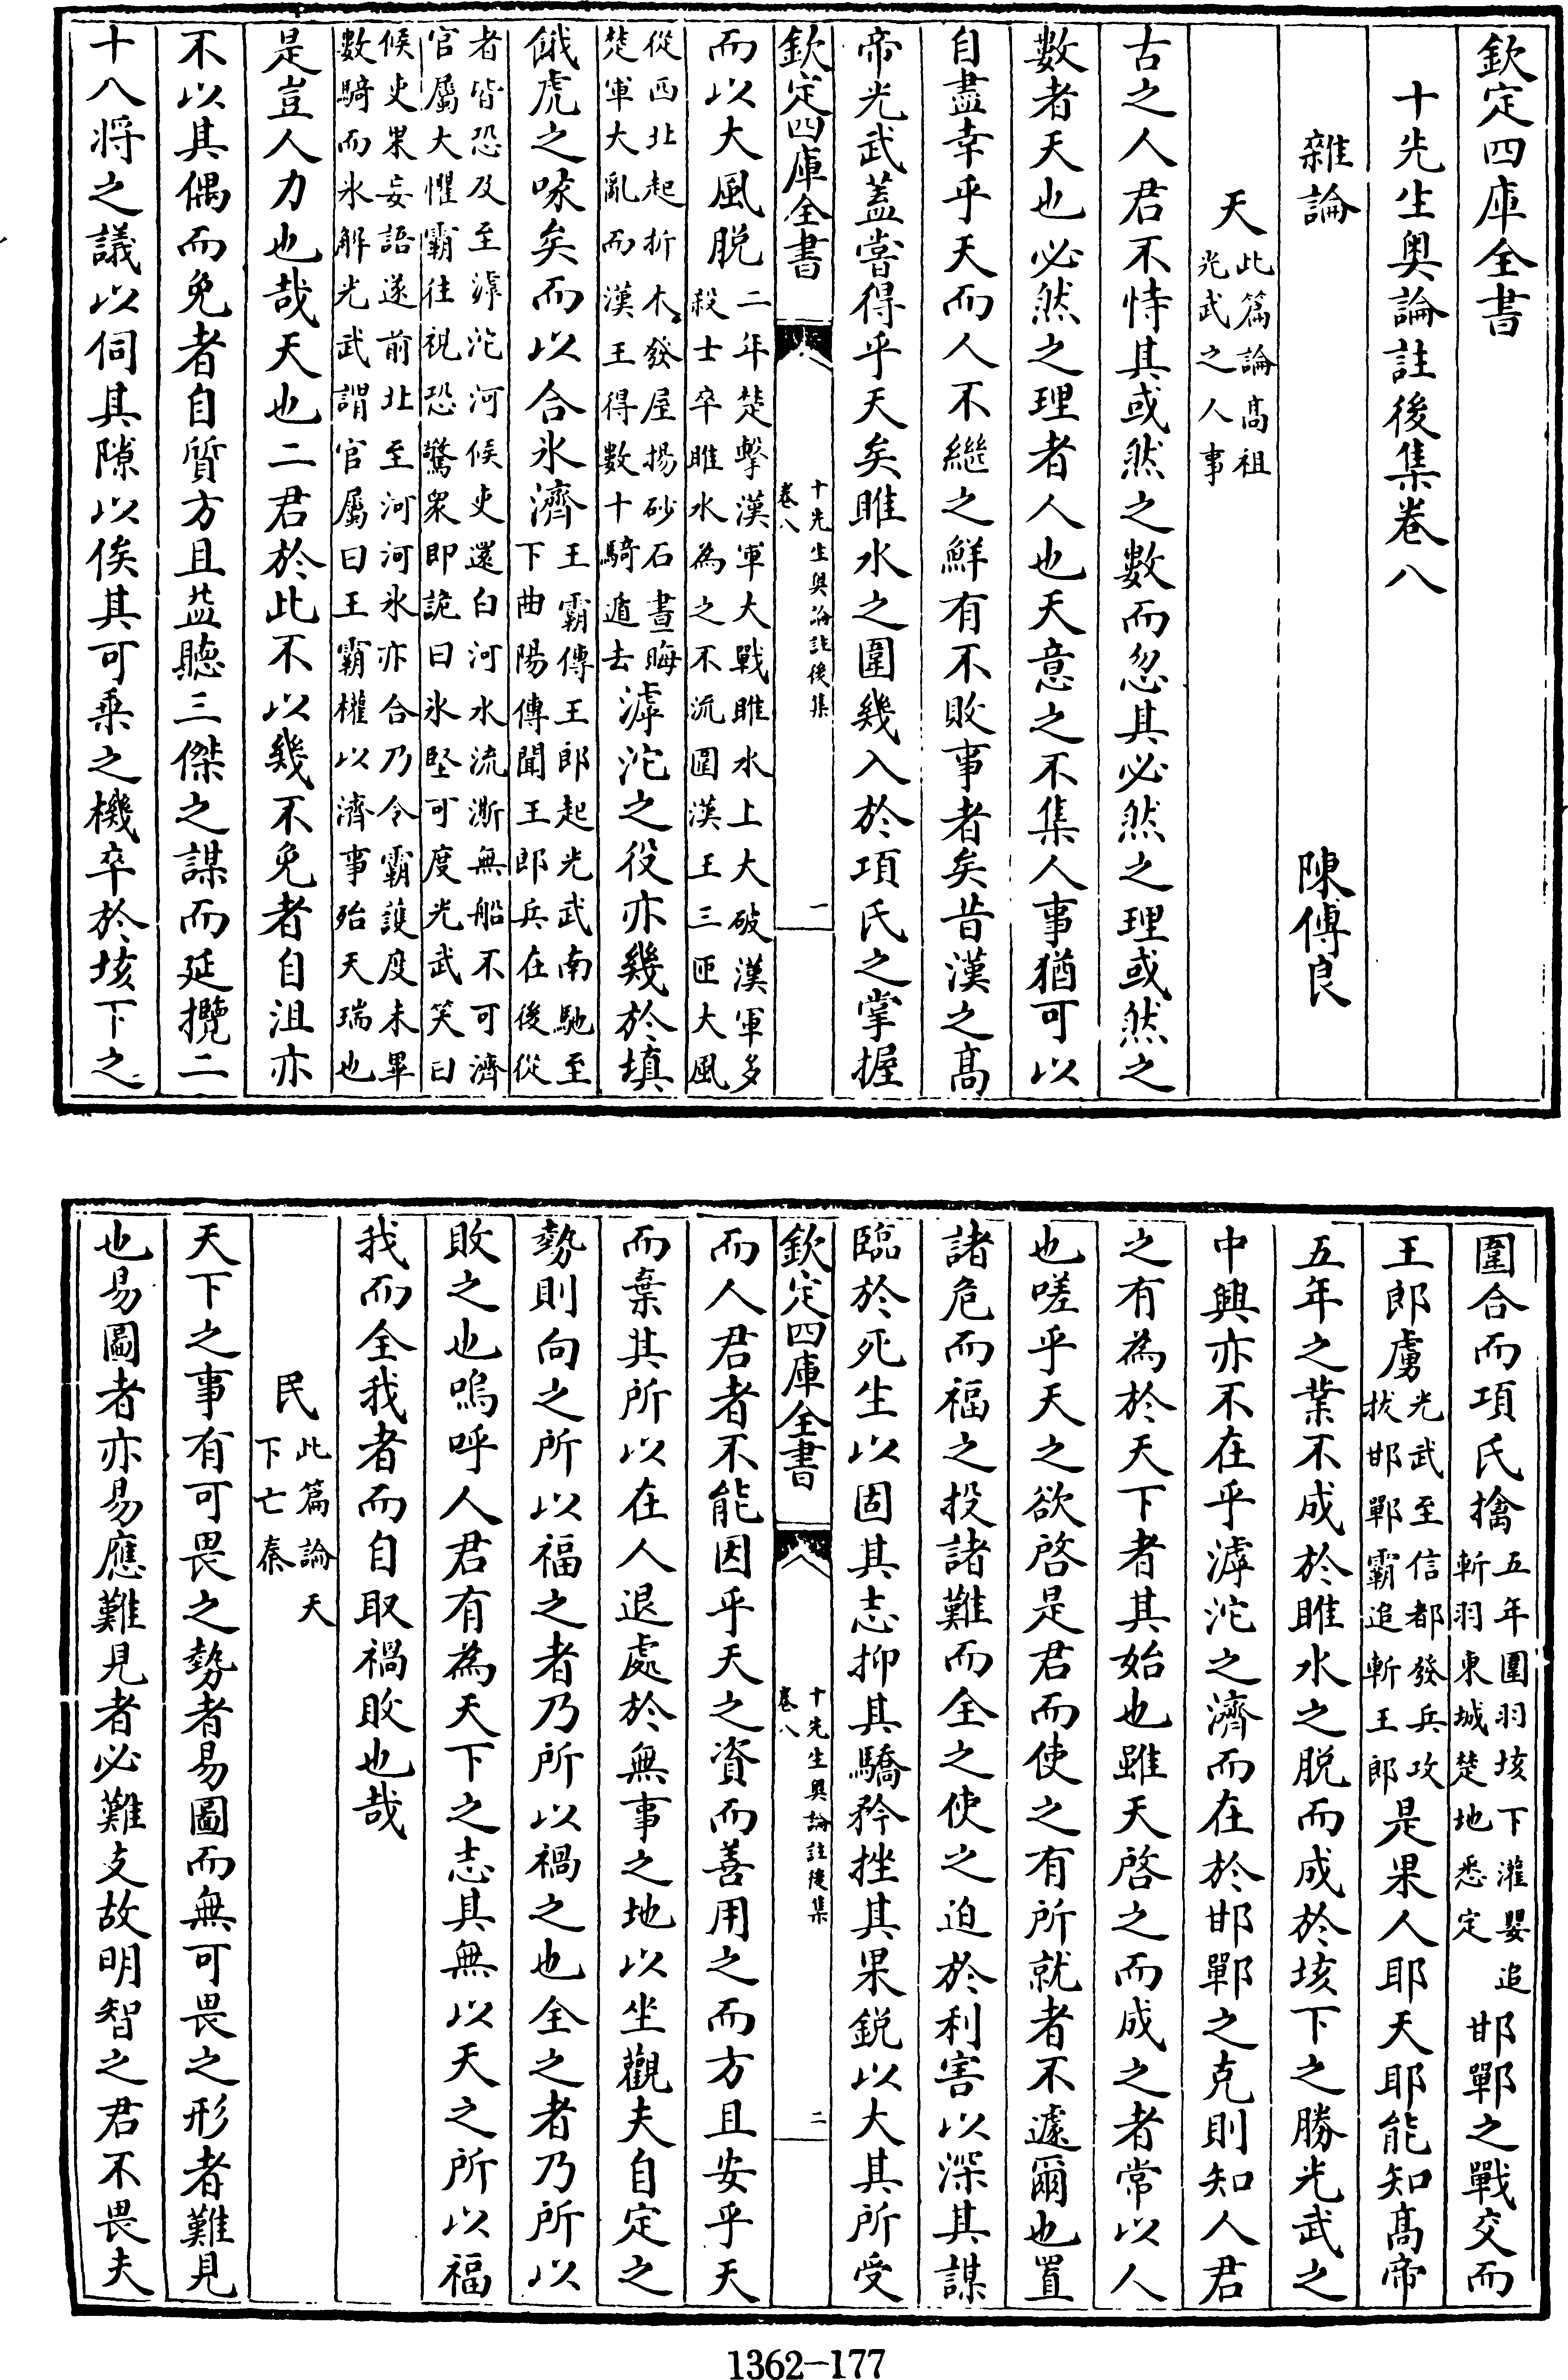 欽定四庫全書
十先生奧論註後集卷八
雜論　陳傅良
天此篇論髙祖光武之人事
古之人君不恃其或然之數而忽其必然之理或然之
數者天也必然之理者人也天意之不集人事猶可以
自盡幸乎天而人不繼之鮮有不敗事者矣昔漢之髙
帝光武蓋嘗得乎天矣睢水之圍幾入於項氏之掌握
欽定四庫全書　卷八　十先生奧論註後集　一
而以大風脱二年楚擊漢軍大戰睢水上大破漢軍多殺士卒睢水為之不流圍漢王三匝大風
從西北起折木發屋揚砂石晝晦楚軍大亂而漢王得數十騎遁去滹沱之役亦幾於填
餓虎之喙矣而以合氷濟王霸傳王郎起光武南馳至下曲陽傳聞王郎兵在後從
者皆恐及至滹沱河候吏還白河水流澌無船不可濟官屬大懼霸往視恐驚衆即詭曰氷堅可度光武笑曰
候吏果妄語遂前北至河河氷亦合乃令霸護度未畢數騎而氷解光武謂官屬曰王霸權以濟事殆天瑞也
是豈人力也哉天也二君於此不以幾不免者自沮亦
不以其偶而免者自質方且益聽三傑之謀而延攬二
十八將之議以伺其隙以俟其可乗之機卒於垓下之
圍合而項氏擒五年圍羽垓下灌嬰追斬羽東城楚地悉定邯鄲之戰交而
王郎虜光武至信都發兵攻拔邯鄲霸追斬王郎是果人耶天耶能知髙帝
五年之業不成於睢水之脱而成於垓下之勝光武之
中興亦不在乎滹沱之濟而在於邯鄲之克則知人君
之有為於天下者其始也雖天啓之而成之者常以人
也嗟乎天之欲啓是君而使之有所就者不遽爾也置
諸危而福之投諸難而全之使之迫於利害以深其謀
臨於死生以固其志抑其驕矜挫其果鋭以大其所受
欽定四庫全書　卷八　十先生奧論註後集　二
而人君者不能因乎天之資而善用之而方且安乎天
而棄其所以在人退處於無事之地以坐觀夫自定之
勢則向之所以福之者乃所以禍之也全之者乃所以
敗之也嗚呼人君有為天下之志具無以天之所以福
我而全我者而自取禍敗也哉
民此篇論天下亡秦
天下之事有可畏之勢者易圖而無可畏之形者難見
也易圖者亦易應難見者必難支故明智之君不畏夫
1362-177